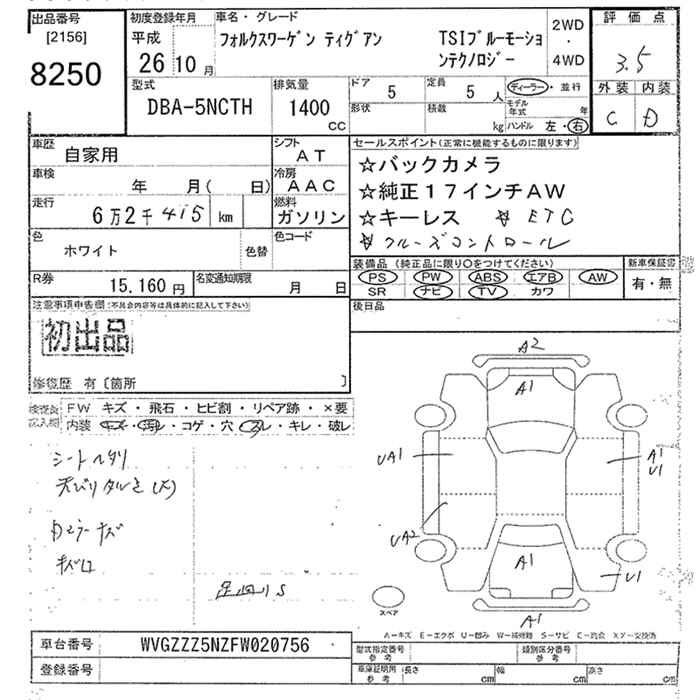 出品番号 初度登録年月 車名・グレード 評価点
[2156] 平成 フォルクスワーゲン ティグアン TSIブルーモーショ 2WD
8250 26 10 月 ンテクノロジー ・ 4WD 3.5
型式 排気量 ドア 5 定員 5 人 ディーラー・並行 外装 内装
DBA-5NCTH 1400 CC 形状 積数 kg モデル年式 年 C D
ハンドル 左・右
車歴 自家用 シフト AT セールスポイント(正常に機能するものに限ります)
車検 年 月( 日) 冷房 AAC ☆バックカメラ
走行 6万2千415 km 燃料 ガソリン ☆純正17インチAW
色 ホワイト 色替 色コード ☆キーレス ☆ ETC
☆クルーズコントロール
R券 15.160 円 名変通知期限 月 日 装備品(純正品に限り○をつけてください) 新車保証書
PS PW ABS エアB AW 有・無
SR ナビ TV カワ
注意事項申告欄(不具合内容等は具体的に記入して下さい) 後日品
初出品
修復歴 有〔箇所 〕
検査員記入欄 FW キズ・飛石・ヒビ割・リペア跡・×要
内装 キズ・汚レ・コゲ・穴・スレ・キレ・破レ
シートヘタリ
キズ
足回りS
A2
A1
UA1 A1
U1
UA2
A1 U1
A1
スペア
A-キズ E-エクボ U-凹み W-補修跡 S-サビ C-腐食 X.Y-交換済
車台番号 WVGZZZ5NZFW020756 型式指定番号 参考 類別区分番号 参考
登録番号 車庫証明用 参考 長さ cm 幅 cm 高さ cm